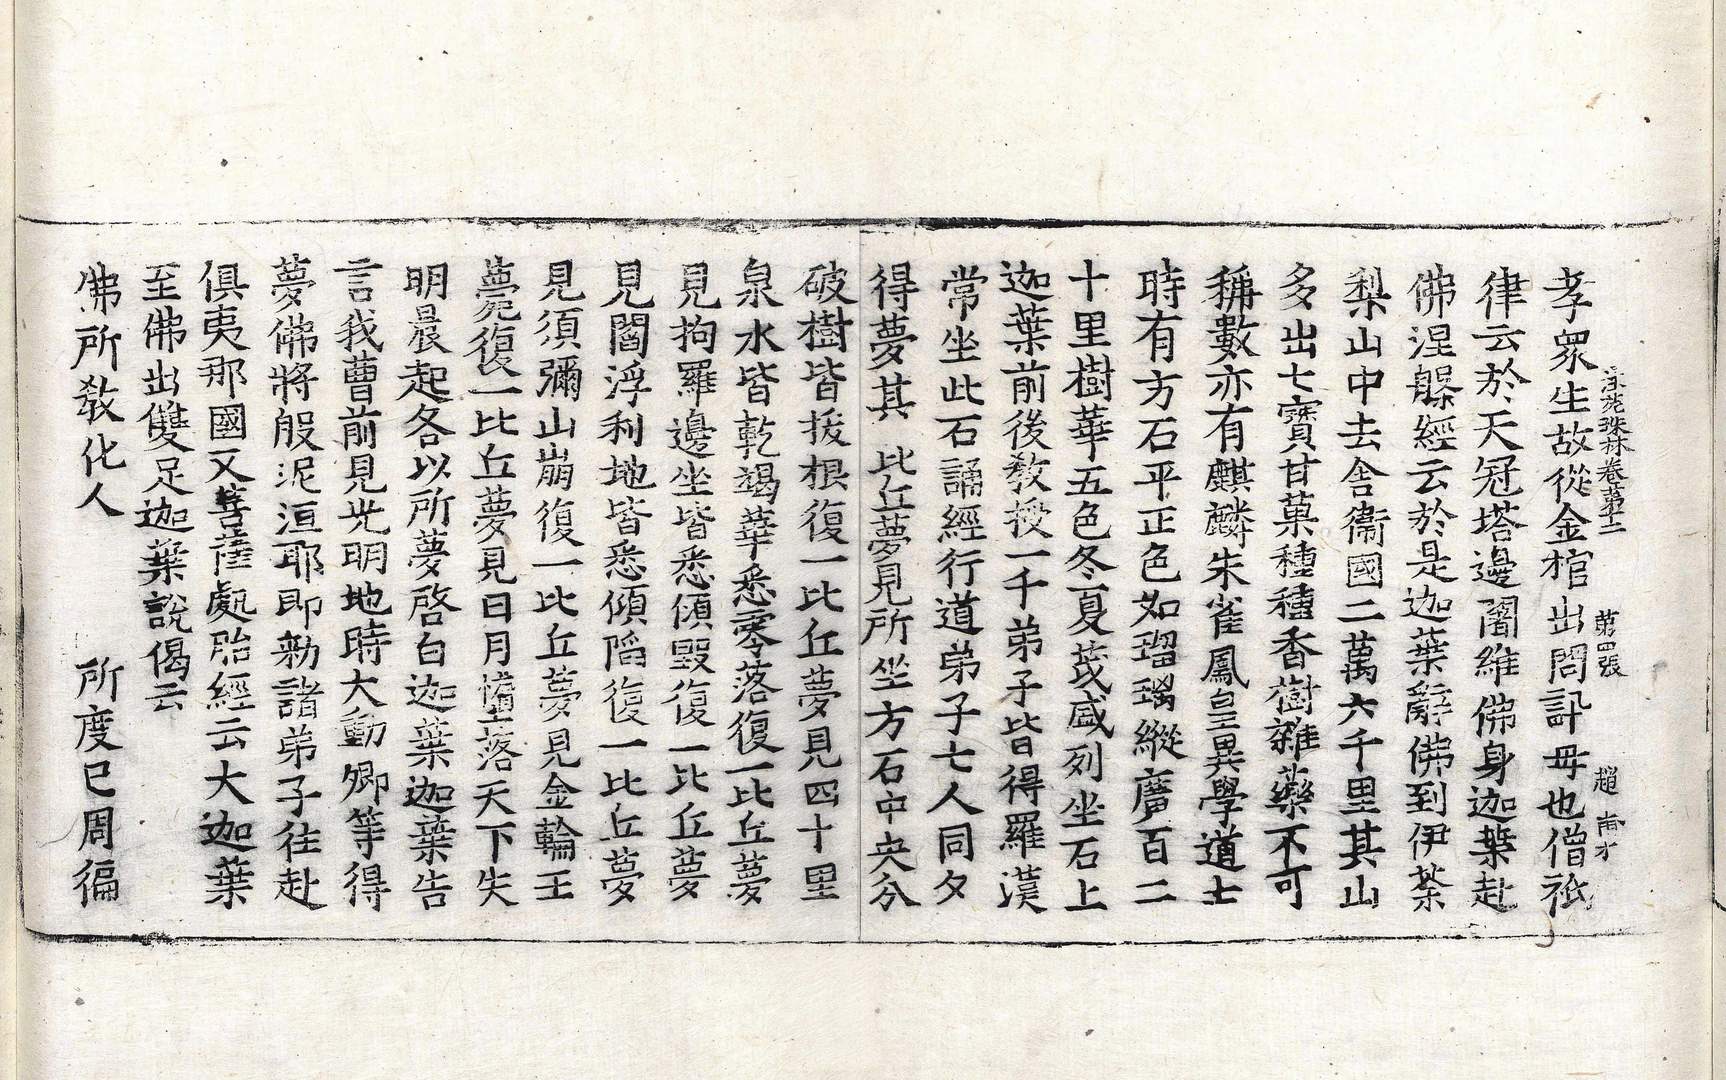 法苑珠林卷第十二 第四張 趙 甫才
孝眾生故從金棺出問訊母也僧祇
律云於天冠塔邊闍維佛身迦葉赴
佛涅槃經云於是迦葉辭佛到伊茶
梨山中去舍衞國二萬六千里其山
多出七寶甘菓種種香樹雜藥不可
稱數亦有麒麟朱雀鳳皇異學道士
時有方石平正色如瑠璃縱廣百二
十里樹華五色冬夏茂盛列坐石上
迦葉前後教授一千弟子皆得羅漢
常坐此石誦經行道弟子七人同夕
得夢其 比丘夢見所坐方石中央分
破樹皆拔根復一比丘夢見四十里
泉水皆乾竭華悉零落復一比丘夢
見拘羅邊坐皆悉傾毀復一比丘夢
見閻浮利地皆悉傾陷復一比丘夢
見須彌山崩復一比丘夢見金輪王
薨復一比丘夢見日月墮落天下失
明晨起各以所夢啓白迦葉迦葉告
言我曹前見光明地時大動卿等得
夢佛將般泥洹耶即勑諸弟子往赴
俱夷那國又菩薩處胎經云大迦葉
至佛出雙足迦葉說偈云
佛所教化人 所度已周徧